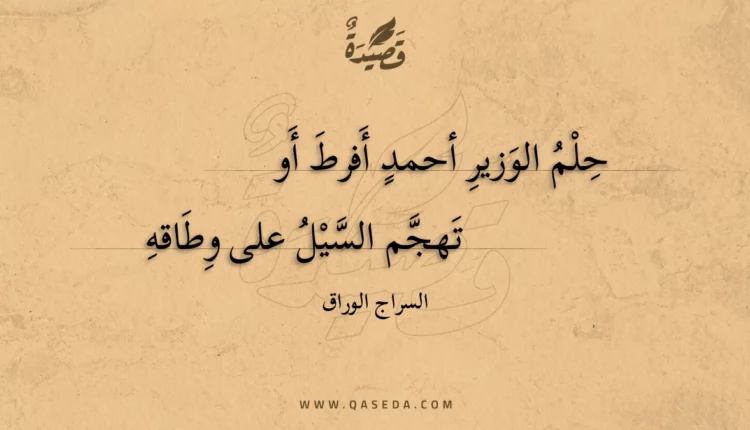 قَصِيْدَةٌ
حِلْمُ الوَزيرِ أحمدٍ أَفرطَ أَو
تَهجَّم السَّيْلُ على وِطَاقهِ
السراج الوراق
WWW.QASEDA.COM